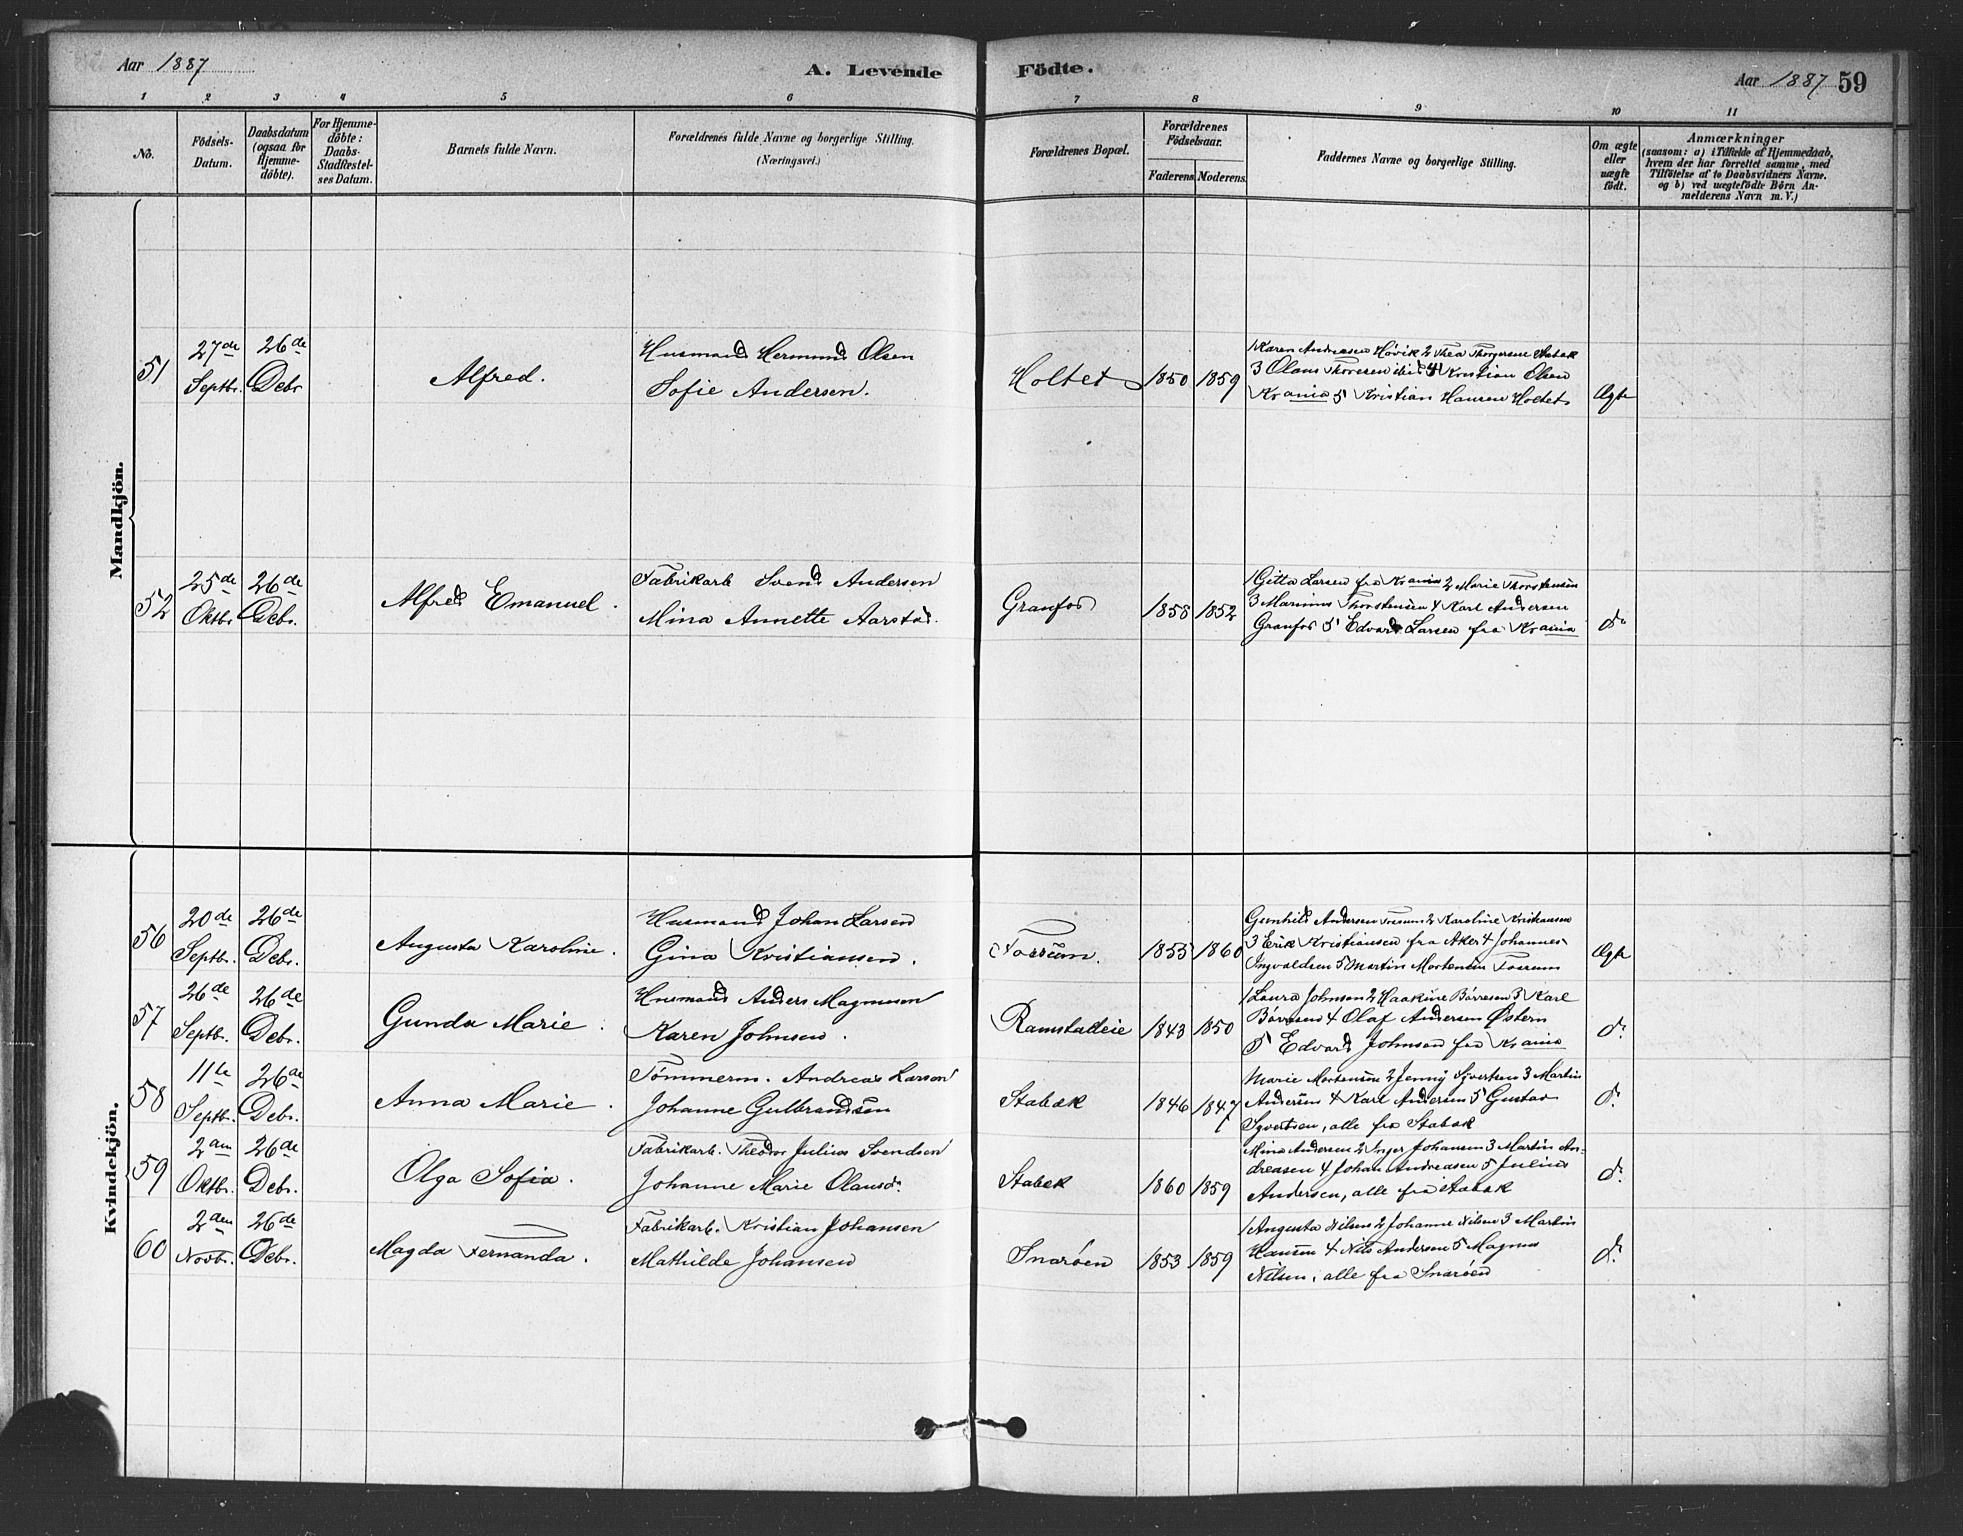 Aar 1887
A. Levende Födte.
Aar 1887 59
1 2 3 4 5 6 7 8 9 10 11
No.
Födsels-Datum.
Daabsdatum (ogsaa for Hjemme-döbte).
For Hjemme-döbte: Daabs-Stadfæstel-ses Datum.
Barnets fulde Navn.
Forældrenes fulde Navne og borgerlige Stilling.
(Næringsvei.)
Forældrenes Bopæl.
Forældrenes Födselsaar.
Faderens. Moderens.
Faddernes Navne og borgerlige Stilling.
Om ægte eller uægte födt.
Anmærkninger
(saasom: a) i Tilfælde af Hjemmedaab,
hvem der har forrettet samme, med
Tilföielse af to Daabsvidners Navne.
og b) ved uægtefödte Börn An-
melderens Navn m. V.)
Mandkjön.
51
27de Septbr.
26de Debr
Alfred.
Husmand Hermund Olsen
Sofie Andersen.
Holtet
1850 1859
1 Karen Andreasen Høvik 2 Thea Thorgersen Stabæk
3 Olaus Thoresen ibid 4 Kristian Olsen
Krania 5 Kristian Hansen Holtet
Ægte
52
25de Oktbr
26de Debr.
Alfred Emanuel.
Fabrikarb Svend Andersen
Mina Annette Aarstad.
Granfos
1858 1852
1 Gitta Larsen fra Krania 2 Marie Thorstensen
3 Marinus Thorstensen 4 Karl Andersen
Granfos 5 Edvard Larsen fra Krania
do
Kvindekjön.
56
20de Septbr.
26de Debr.
Augusta Karoline.
Husmand Johan Larsen
Gina Kristiansen.
Fossum.
1855 1860
Gunhild Andersen Fossum 2 Karoline Kristiansen
3 Erik Kristiansen fra Aker 4 Johannes
Ingvaldsen 5 Martin Mortensen Fossum
Ægte
57
26de Septbr.
26de Debr.
Gunda Marie.
Husmand Anders Magnusen
Karen Johnsen.
Ramstadeie
1843 1850
1 Laura Johnsen 2 Haakine Børresen 3 Karl
Børresen 4 Olaf Andersen Østern
5 Edvard Johnsen fra Krania
do
58
11te Septbr.
26de Debr.
Anna Marie.
Tömmerm. Andreas Larsen
Johanne Gulbrandsen
Stabæk
1846 1847
Marie Mortensen 2 Jenny Syvertsen 3 Martin
Andersen 4 Karl Andersen 5 Gustav
Syvertsen, alle fra Stabæk
do
59
2den Oktbr.
26de Debr.
Olga Sofia.
Fabrikarb. Theodor Julius Svendsen
Johanne Marie Olausdr.
Stabæk
1860 1859
Mina Andersen 2 Inger Johansen 3 Martin An-
dreasen 4 Johan Andreasen 5 Julius
Andersen, alle fra Stabæk
do
60
2den Novbr.
26de Debr.
Magda Fernanda.
Fabrikarb. Kristian Johansen
Mathilde Johansen
Snarøen
1853 1859
1 Augusta Nilsen 2 Johanne Nilsen 3 Martin
Hansen 4 Nils Andersen 5 Magnus
Nilsen, alle fra Snarøen
do